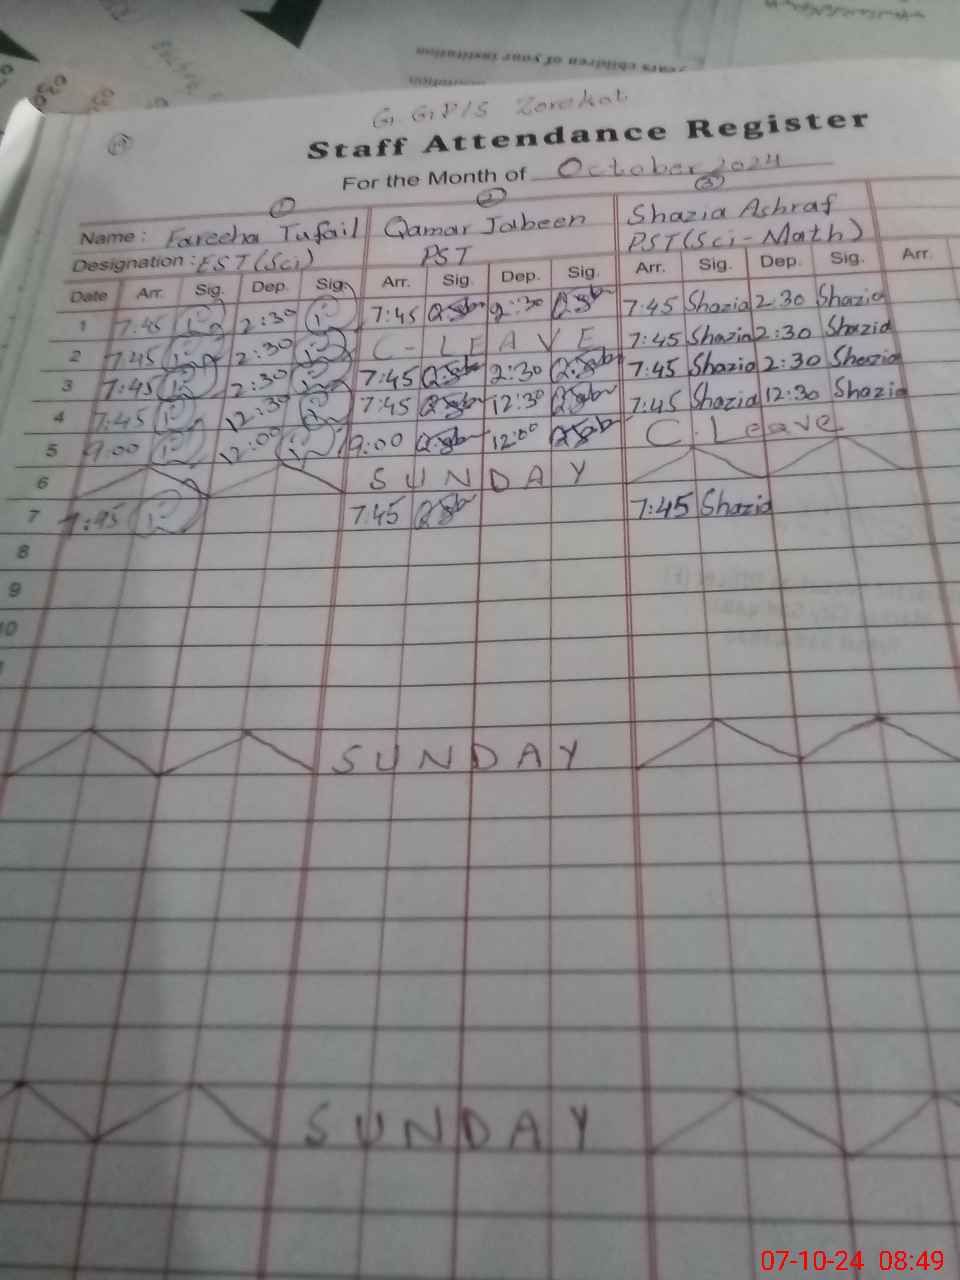 years children of your institution
G.G.P/S Zorekot
Staff Attendance Register
For the Month of October 2024
1 2 3
Name: Fareeha Tufail Qamar Jabeen Shazia Ashraf
Designation: EST(Sci) PST PST(Sci-Math)
Date Arr. Sig. Dep. Sig. Arr. Sig. Dep. Sig. Arr. Sig. Dep. Sig. Arr.
1 7:45 2:30 7:45 2:30 7:45 Shazia 2:30 Shazia
2 7:45 2:30 C-LEAVE 7:45 Shazia 2:30 Shazia
3 7:45 2:30 7:45 2:30 7:45 Shazia 2:30 Shazia
4 7:45 12:30 7:45 12:30 7:45 Shazia 12:30 Shazia
5 9:00 12:00 9:00 12:00 C.Leave
6 SUNDAY
7 7:45 7:45 7:45 Shazia
8
9
10
SUNDAY
SUNDAY
07-10-24 08:49